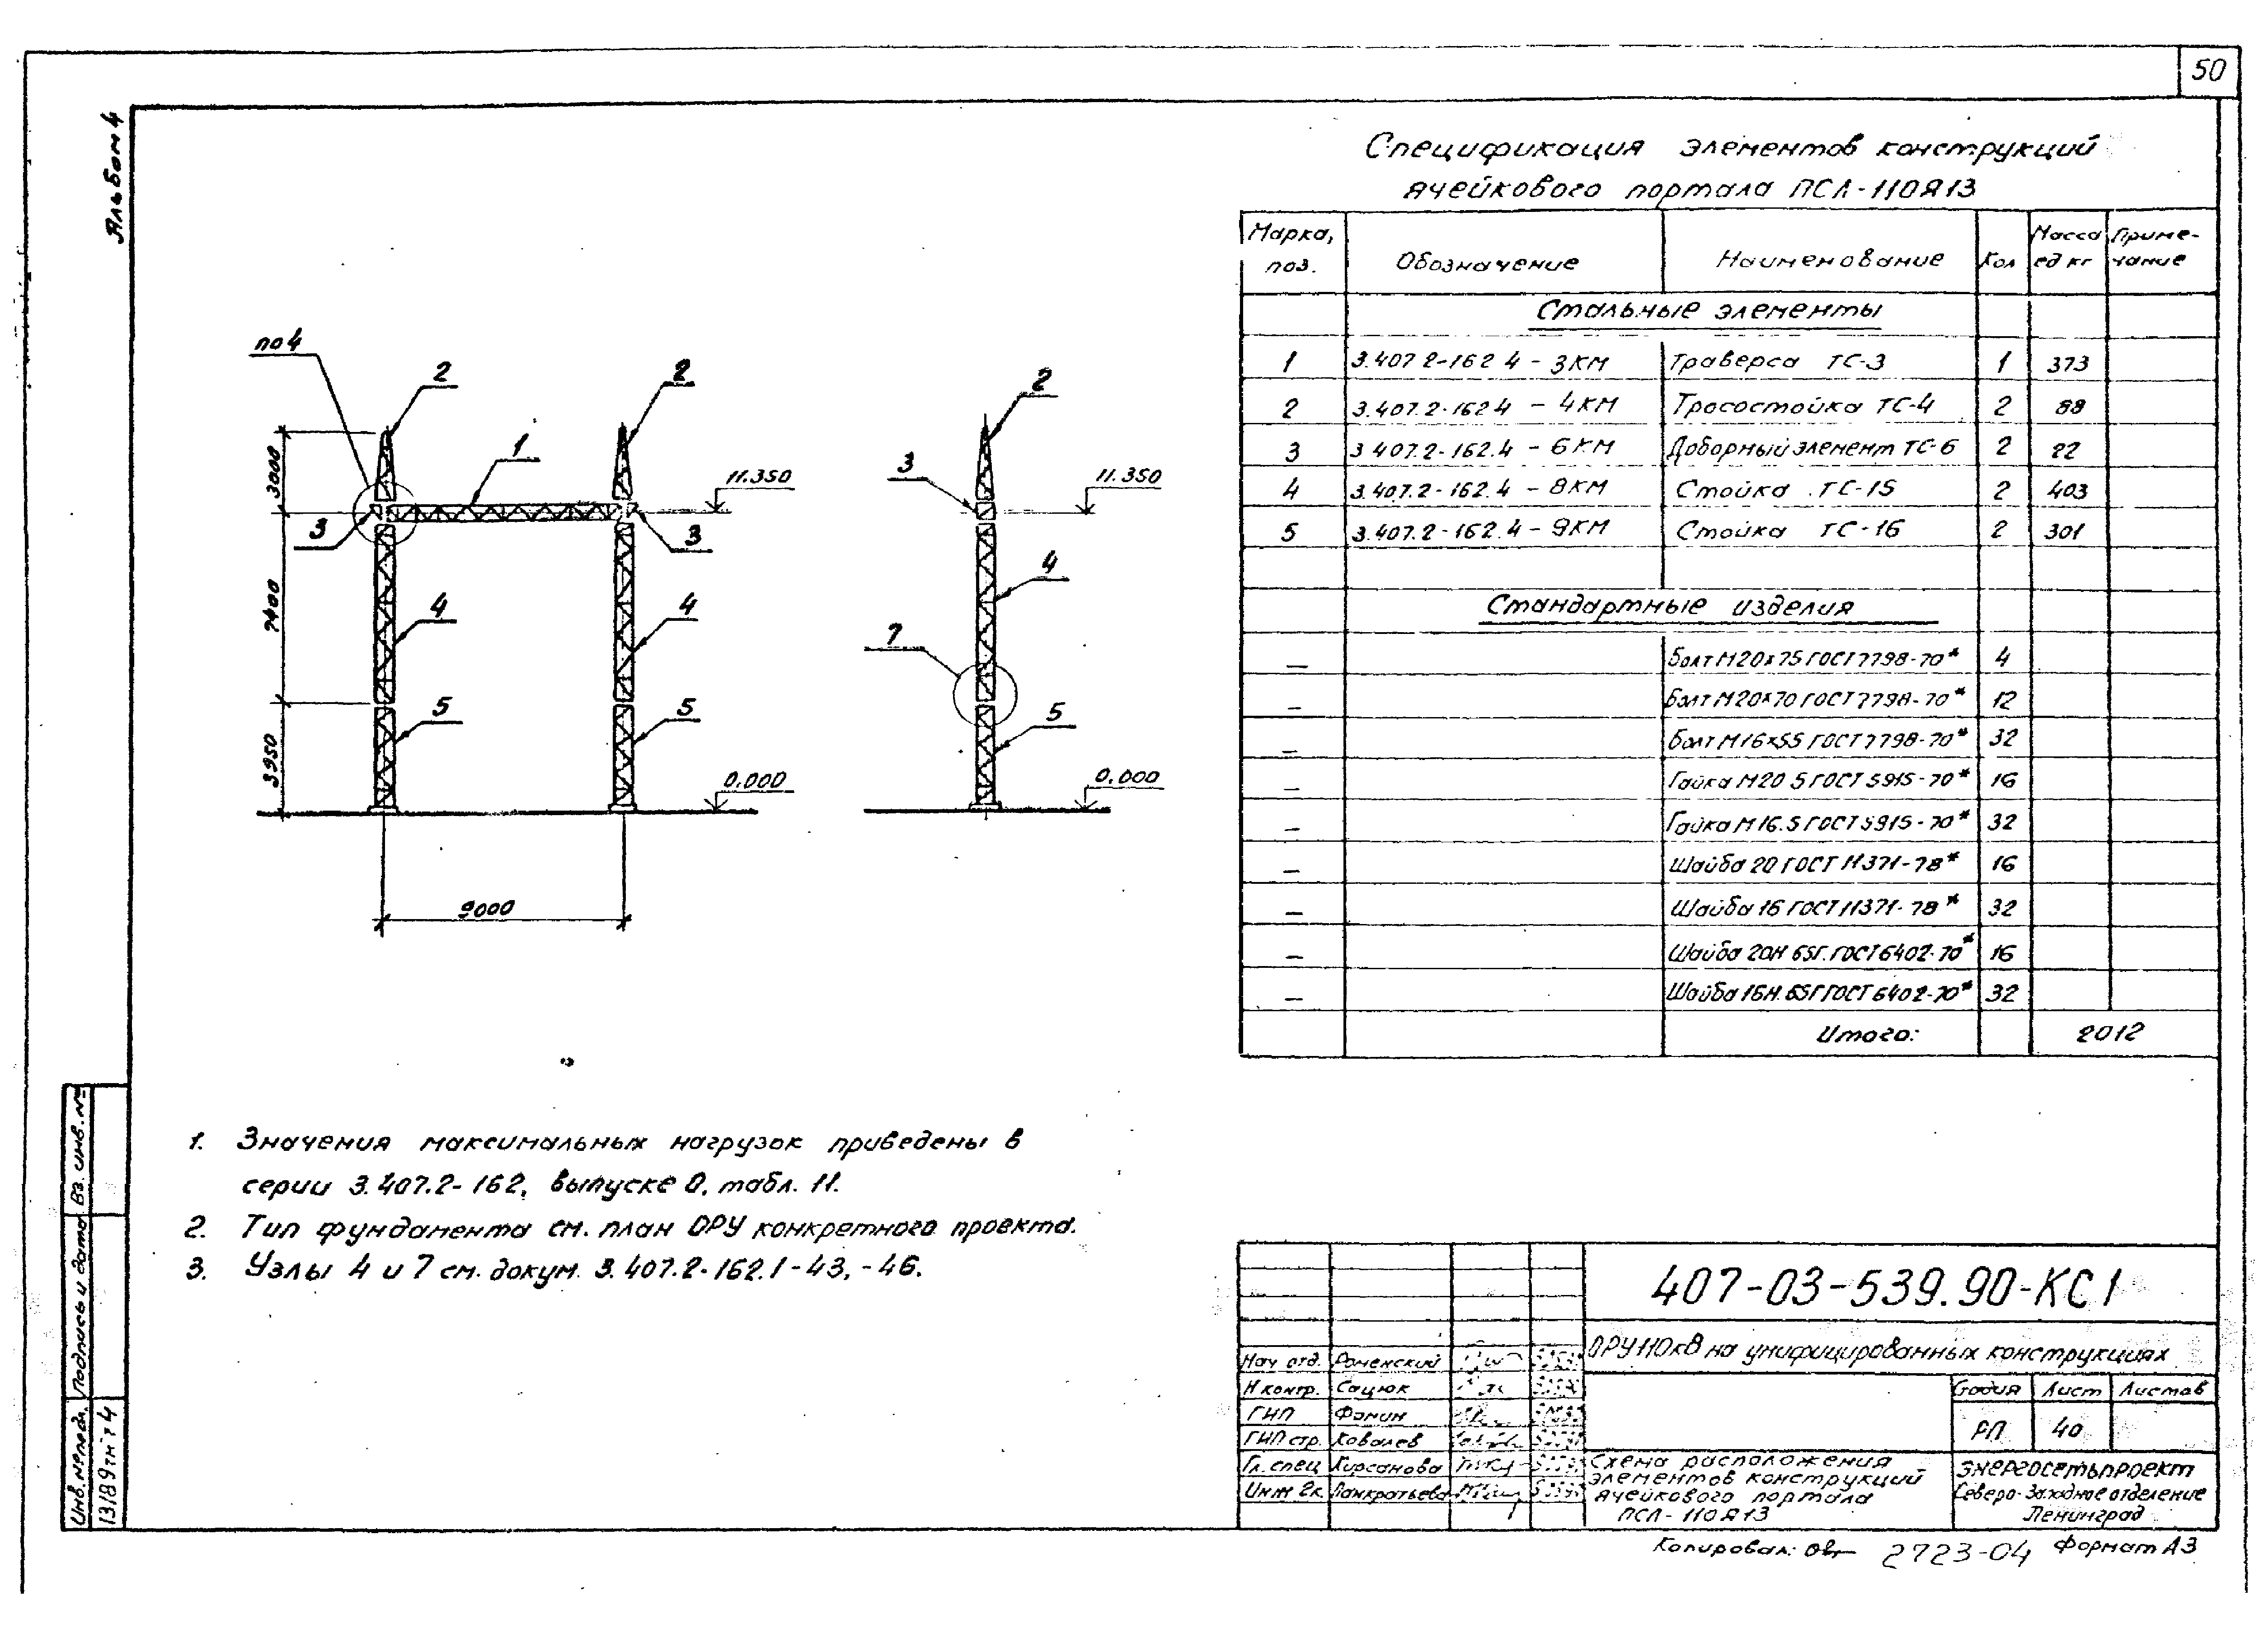 50
Альбом 4
Спецификация элементов конструкций
ячейкового портала ПСЛ-110Я13
Марка, поз. Обозначение Наименование Кол Масса ед кг Приме-чание
Стальные элементы
1 3.407 2-162 4 - 3КМ Траверса ТС-3 1 373
2 3.407.2-162 4 - 4КМ Тросостойка ТС-4 2 88
3 3 407.2-162.4 - 6КМ Доборный элемент ТС-6 2 22
4 3.407.2-162.4 - 8КМ Стойка ТС-15 2 403
5 3.407.2-162.4 - 9КМ Стойка ТС-16 2 301
Стандартные изделия
— Болт М20×75 ГОСТ 7798-70* 4
— Болт М20×70 ГОСТ 7798-70* 12
— Болт М16×55 ГОСТ 7798-70* 32
— Гайка М20 5 ГОСТ 5915-70* 16
— Гайка М16.5 ГОСТ 5915-70* 32
— Шайба 20 ГОСТ 11371-78* 16
— Шайба 16 ГОСТ 11371-78* 32
— Шайба 20Н 65Г. ГОСТ 6402-70* 16
— Шайба 16Н. 65Г ГОСТ 6402-70* 32
Итого: 2012
по 4
2
2
1
3
3
4
4
5
5
11.350
0.000
3000
7400
3950
9000
2
3
4
7
5
11.350
0.000
1. Значения максимальных нагрузок приведены в
серии 3.407.2-162, выпуске 0, табл. 11.
2. Тип фундамента см. план ОРУ конкретного проекта.
3. Узлы 4 и 7 см. докум. 3.407.2-162.1-43, -46.
Инв. № подл. Подпись и дата Вз. инв. №
13189тм-т4
407-03-539.90-КС1
ОРУ 110 кВ на унифицированных конструкциях
Нач отд. Роменский
Н контр. Сацюк
ГИП Фомин
ГИП стр. Ковалев
Гл. спец Кирсанова
Инж 2к. Панкратьева
Стадия Лист Листов
РП 40
Схема расположения
элементов конструкций
ячейкового портала
ПСЛ-110Я13
Энергосетьпроект
Северо-Западное отделение
Ленинград
Копировал: 2723-04 Формат А3